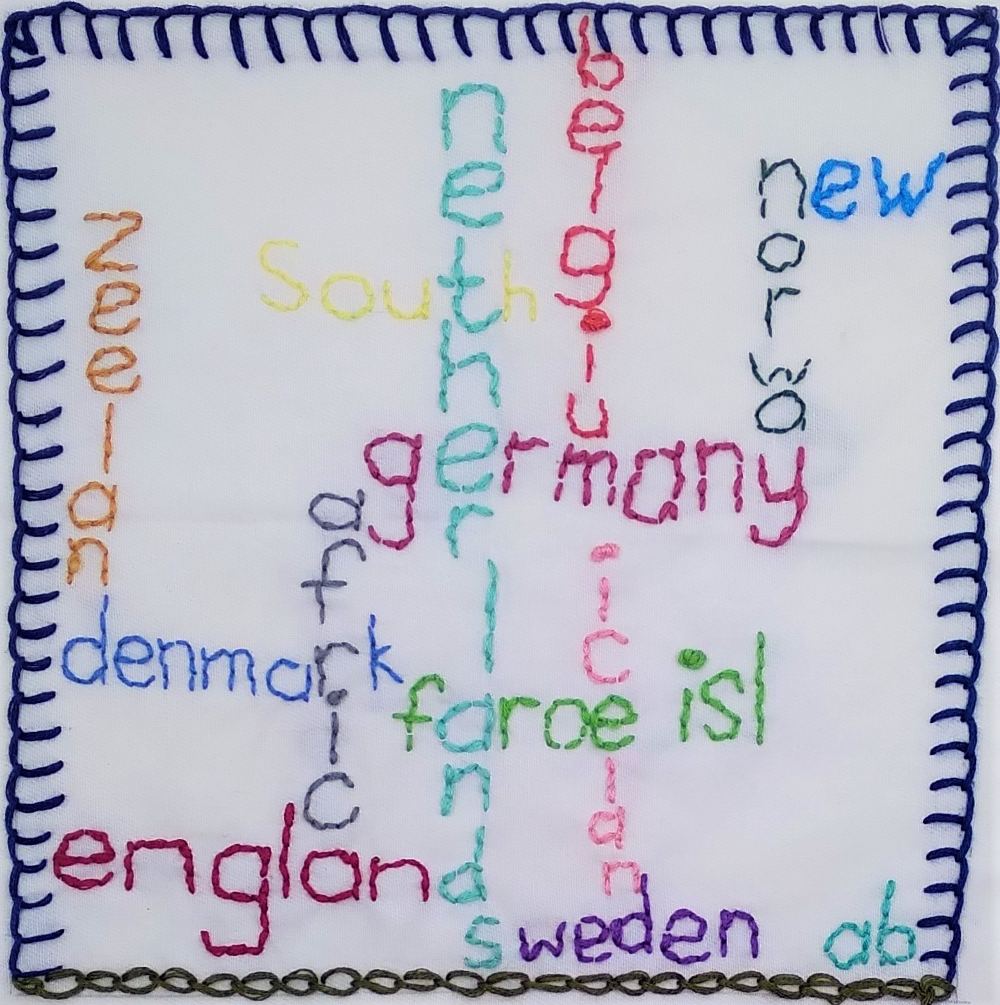 belgium
netherlands
new
norway
Zeeland
South
germany
africa
iceland
denmark
faroe isl
england
sweden
ab